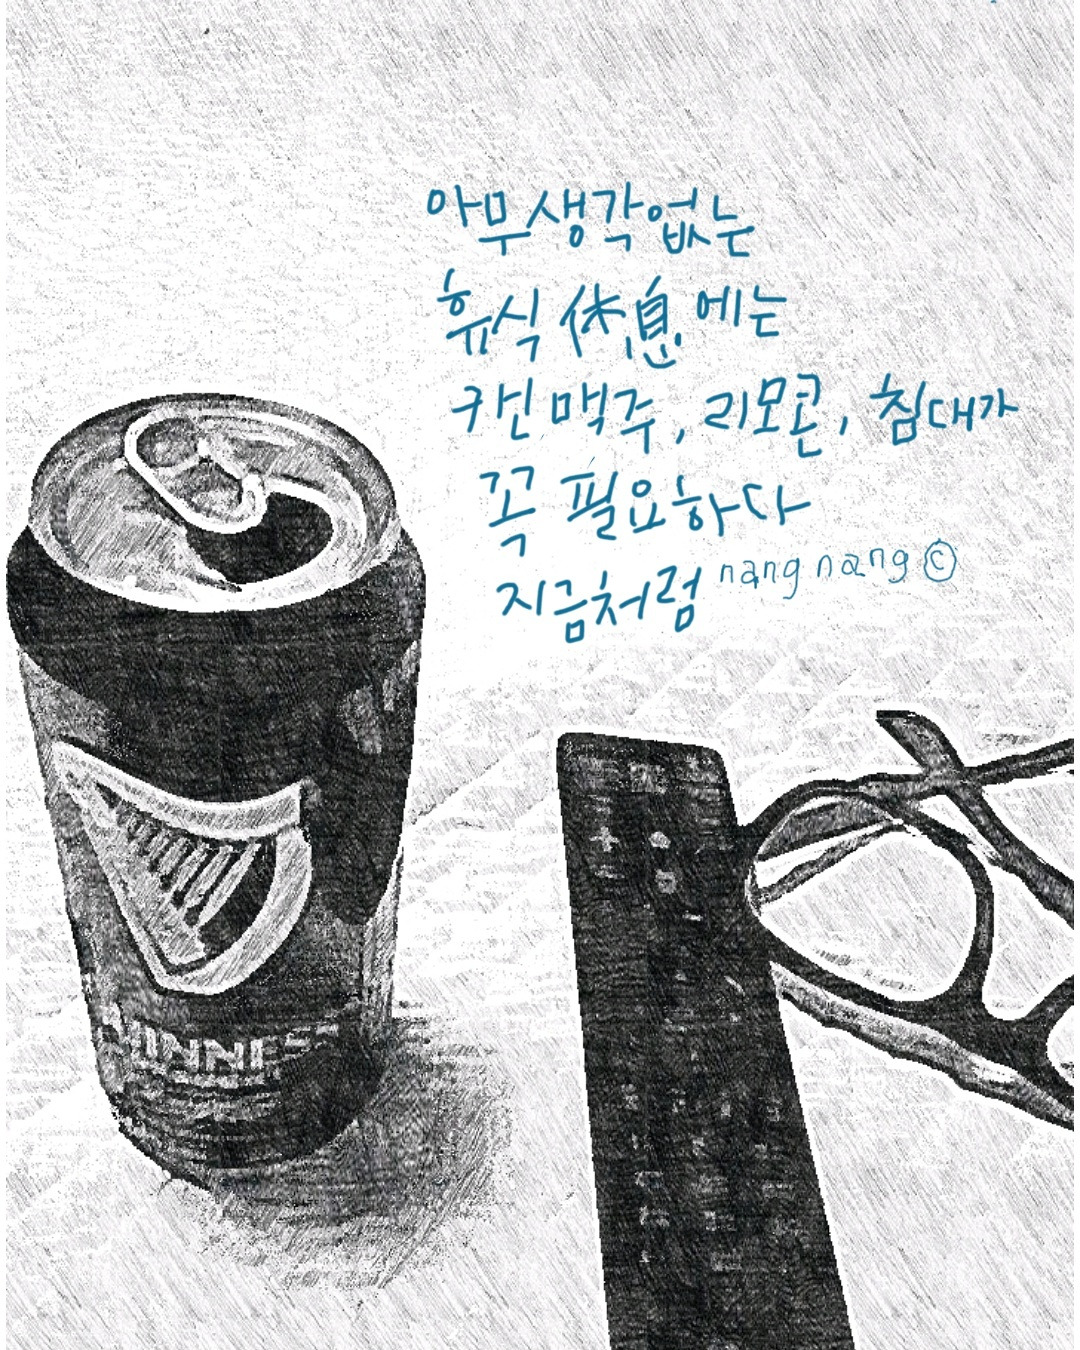 아무생각없는
휴식 休息에는
캔맥주, 리모콘, 침대가
꼭 필요하다
지금처럼 nang nang ©